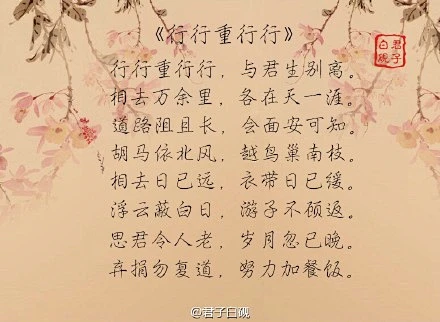 《行行重行行》
行行重行行，与君生别离。
相去万余里，各在天一涯。
道路阻且长，会面安可知。
胡马依北风，越鸟巢南枝。
相去日已远，衣带日已缓。
浮云蔽白日，游子不顾返。
思君令人老，岁月忽已晚。
弃捐勿复道，努力加餐饭。
君子
白砚
@君子白砚